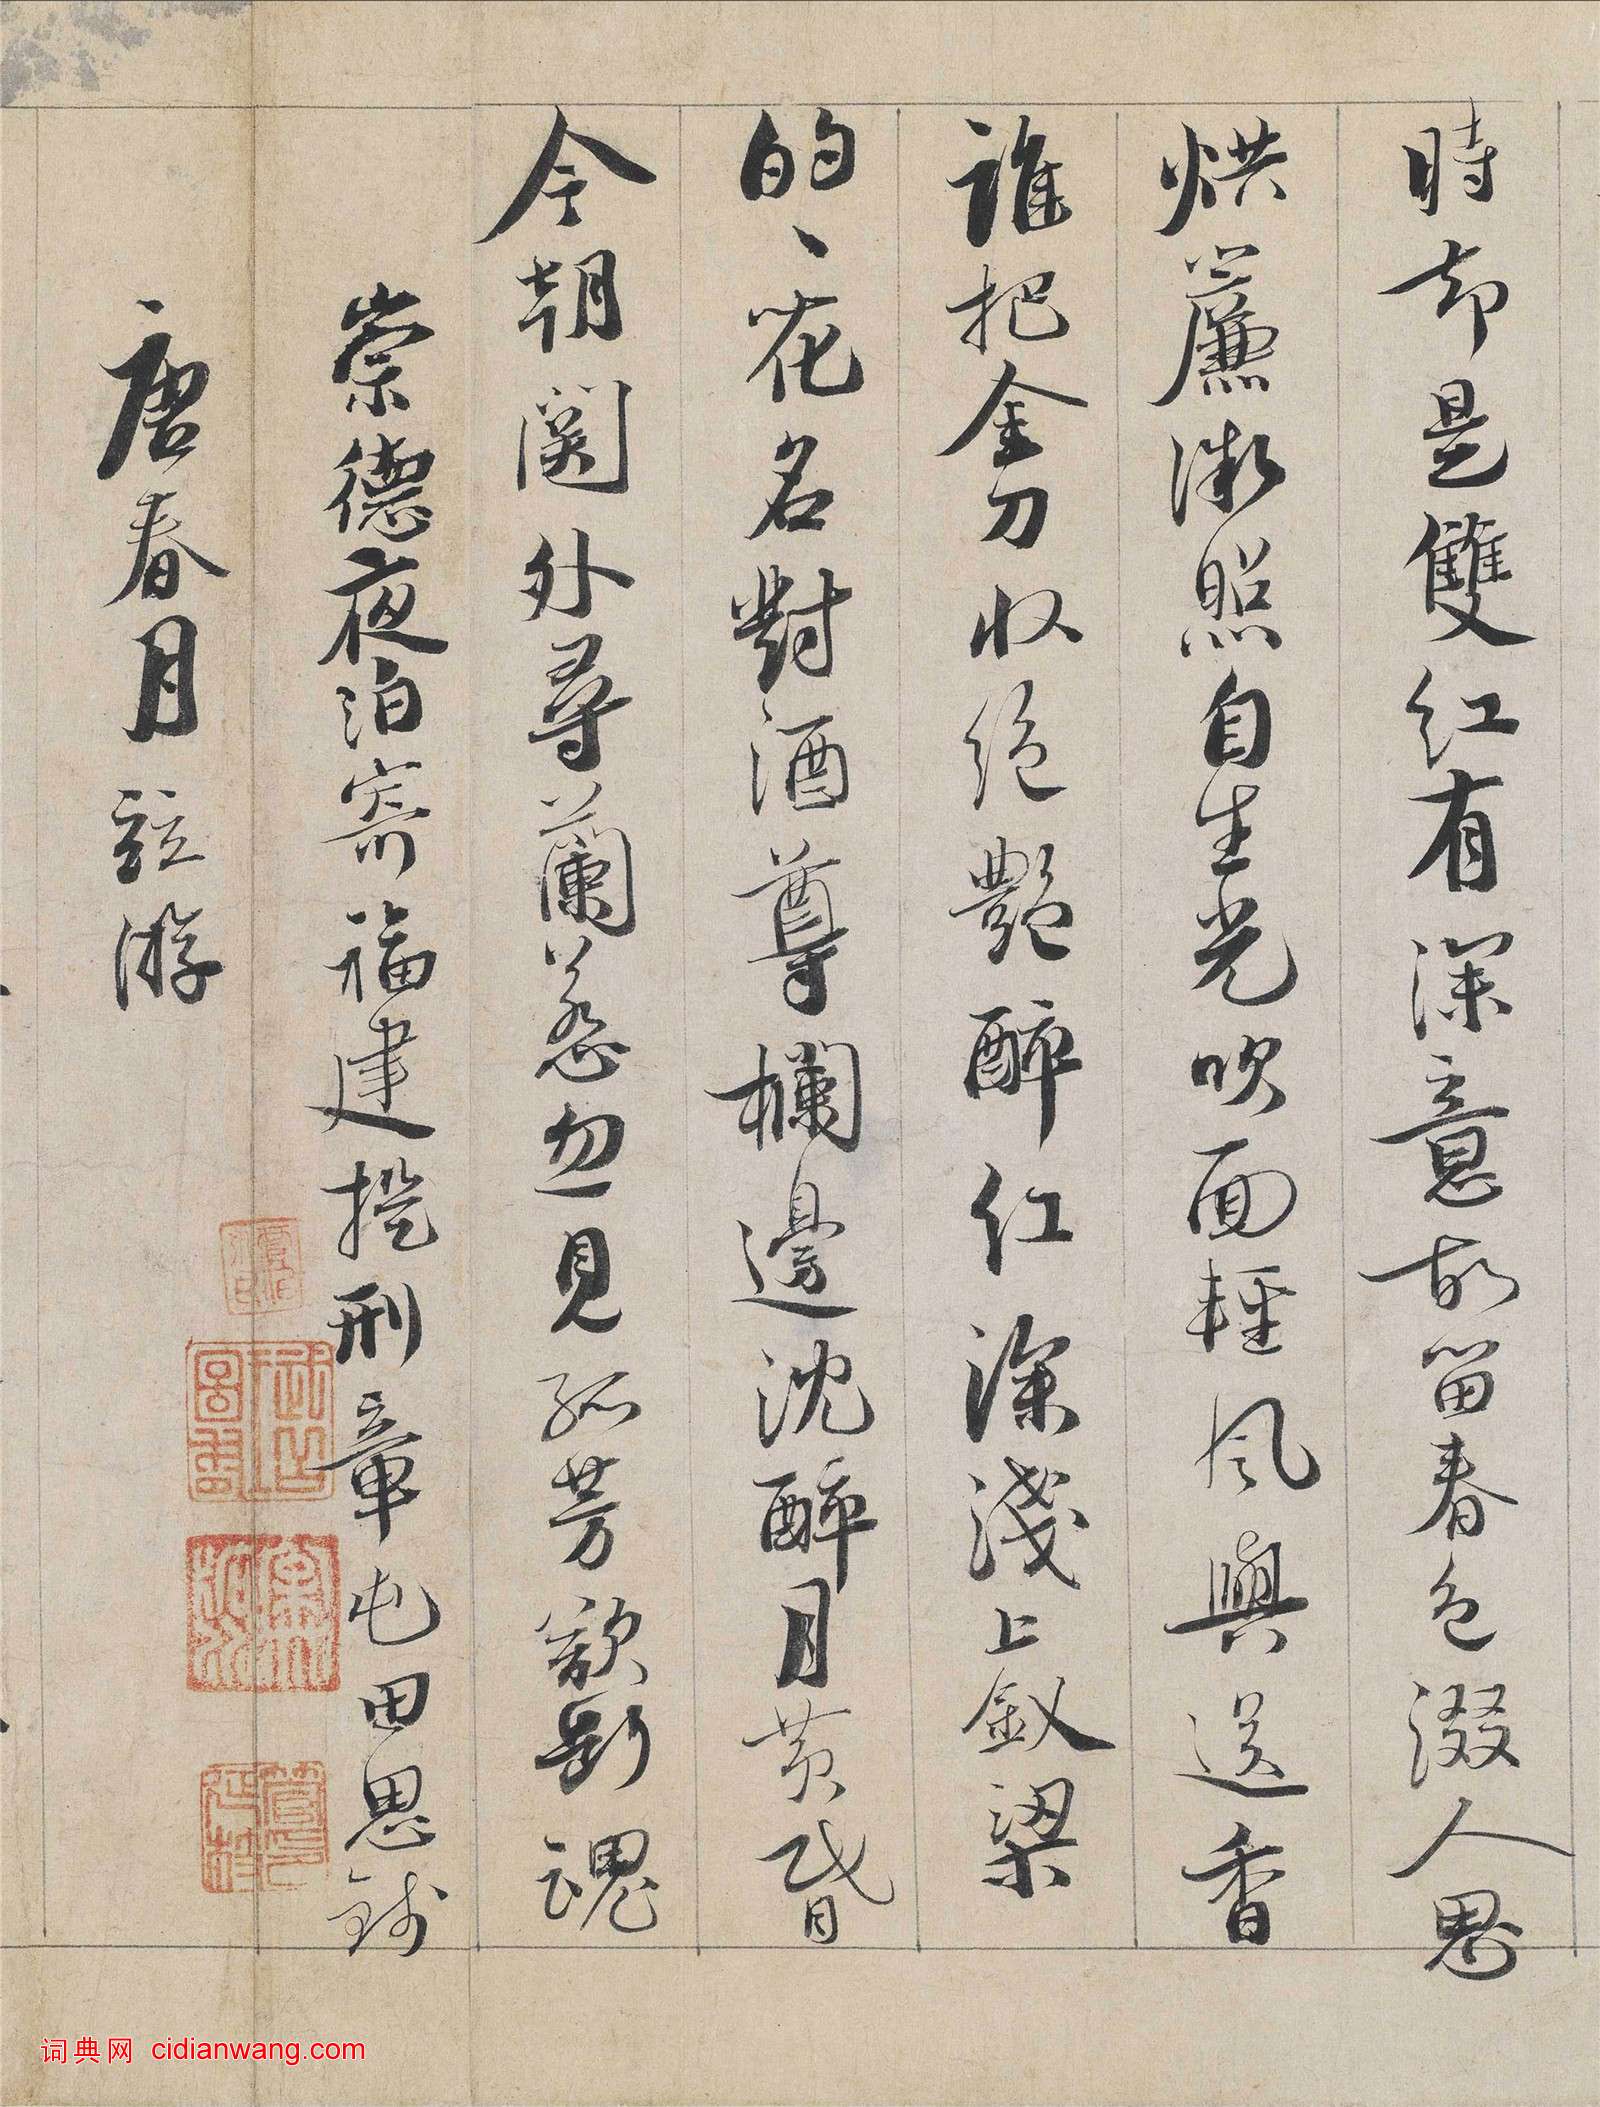 時却是雙紅有深意故留春色綴人思
烘簾微照自生光吹面輕風與送香
誰把金刀收絕艷醉紅深淺上釵梁
的〻花名對酒尊欄邊沈醉月黃昏
今朝關外尋蘭蕊忽見孤芳欲斷魂
崇德夜泊寄福建提刑章屯田思錢
唐春月並游
词典网 cidianwang.com